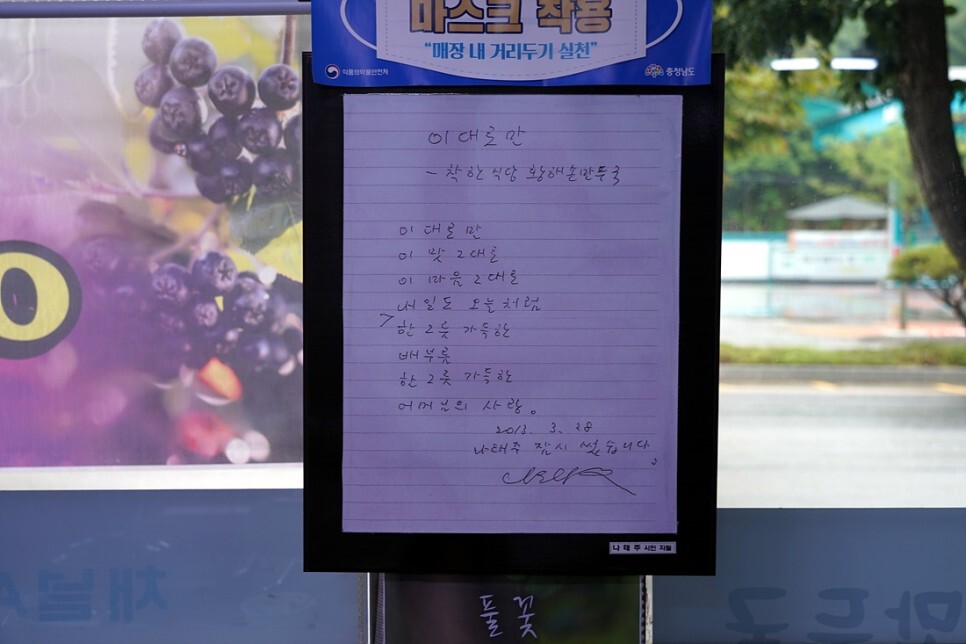 마스크 착용
“매장 내 거리두기 실천”
식품의약품안전처
충청남도
이대로만
- 착한식당 황해손만두국
이대로만
이 맛 그대로
이 마음 그대로
내일도 오늘처럼
한 그릇 가득한
배부름
한 그릇 가득한
어머님의 사랑。
2013. 3. 28
나태주 잠시 썼습니다.
나 태 주 시인 자필
풀꽃
채널A
만두국